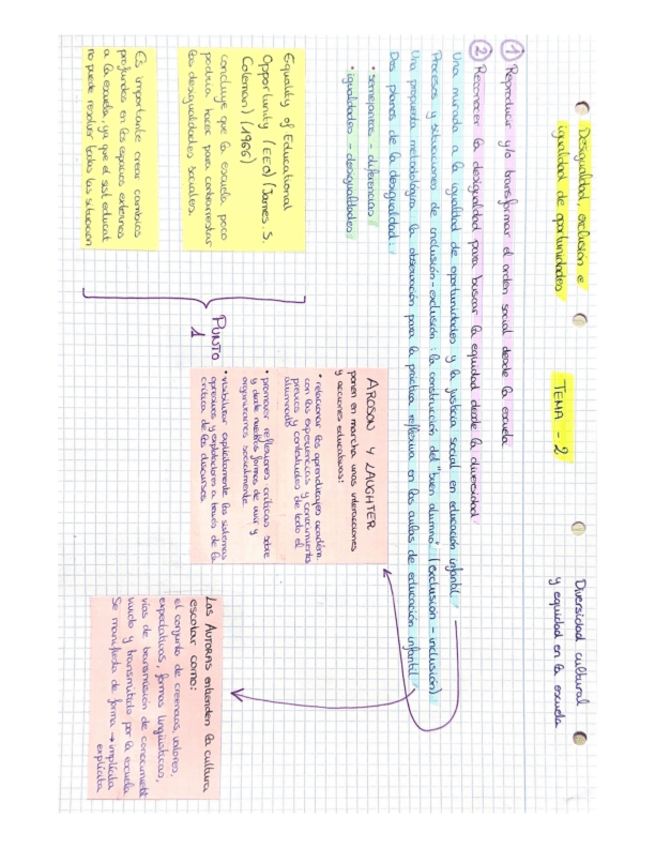 Desigualdad, exclusión e
igualdad de oportunidades
TEMA - 2
Diversidad cultural
y equidad en la escuela
① Reproducir y/o transformar el orden social desde la escuela
② Reconocer la desigualdad para buscar la equidad desde la diversidad
Una mirada a la igualdad de oportunidades y la justicia social en educación infantil
Procesos y situaciones de inclusión-exclusión: la construcción del "buen alumno" (exclusión - inclusión)
Una propuesta metodológica: la observación para la práctica reflexiva en las aulas de educación infantil
Dos planos de la desigualdad:
• semejantes - diferencias
• igualdades - desigualdades
Equality of Educational
Opportunity (EEO) (James. S.
Coleman) (1966)
concluye que la escuela poco
podría hacer para contrarrestar
las desigualdades sociales.
Es importante crear cambios
profundos en los espacios externos
a la escuela, ya que el sist. educat
no puede resolver todas las situación
PUNTO
1
AROSON Y LAUGHTER
ponen en marcha unas interacciones
y acciones educativas:
• relacionar los aprendizajes académ.
con las experiencias y conocimients
previos y contextuales de todo el
alumnado
• promover reflexiones críticas sobre
y desde nuestras formas de vivir y
organizarnos socialmente.
• visibilizar explícitamente los sistemas
opresivos y explotadores a través de la
crítica de los discursos.
Las AUTORAS entienden la cultura
escolar como:
el conjunto de creencias, valores,
expectativas, formas lingüísticas,
vías de transmisión de conocimient
vivido y transmitido por la escuela
Se manifiesta de forma → implícita
explícita